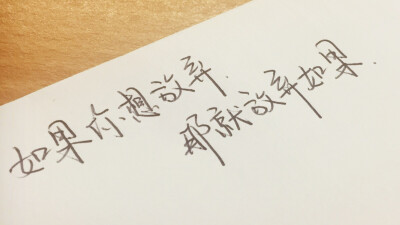 如果你想放弃.
那就放弃如果.